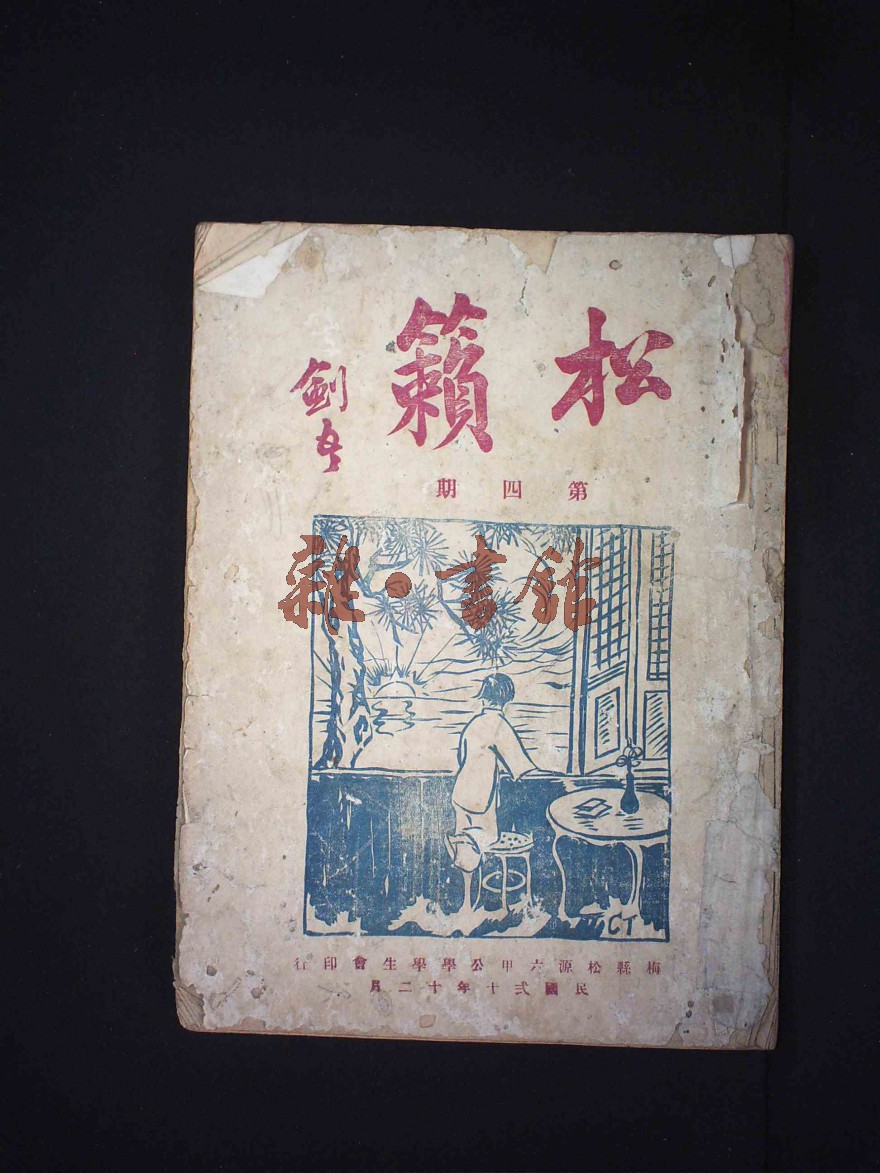 松籟
劍
第四期
雜·書館
CT
梅縣松源六甲公學學生會印行
民國弍十年十二月